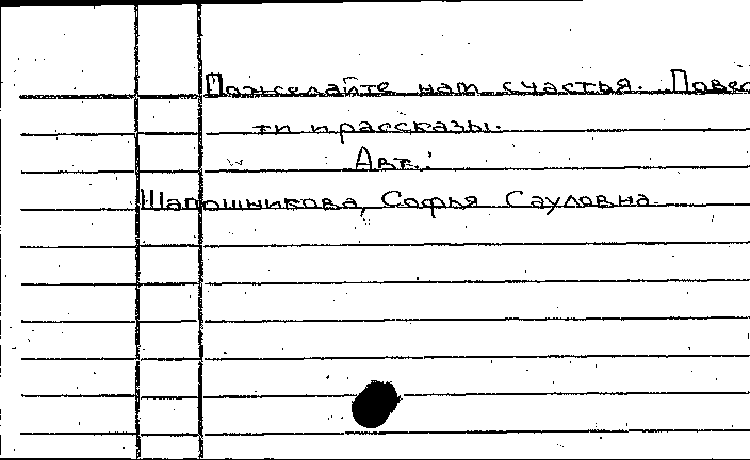 Пожелайте нам счастья. Повес
ти и рассказы.
Авт.:
Шапошникова, Софья Сауловна.